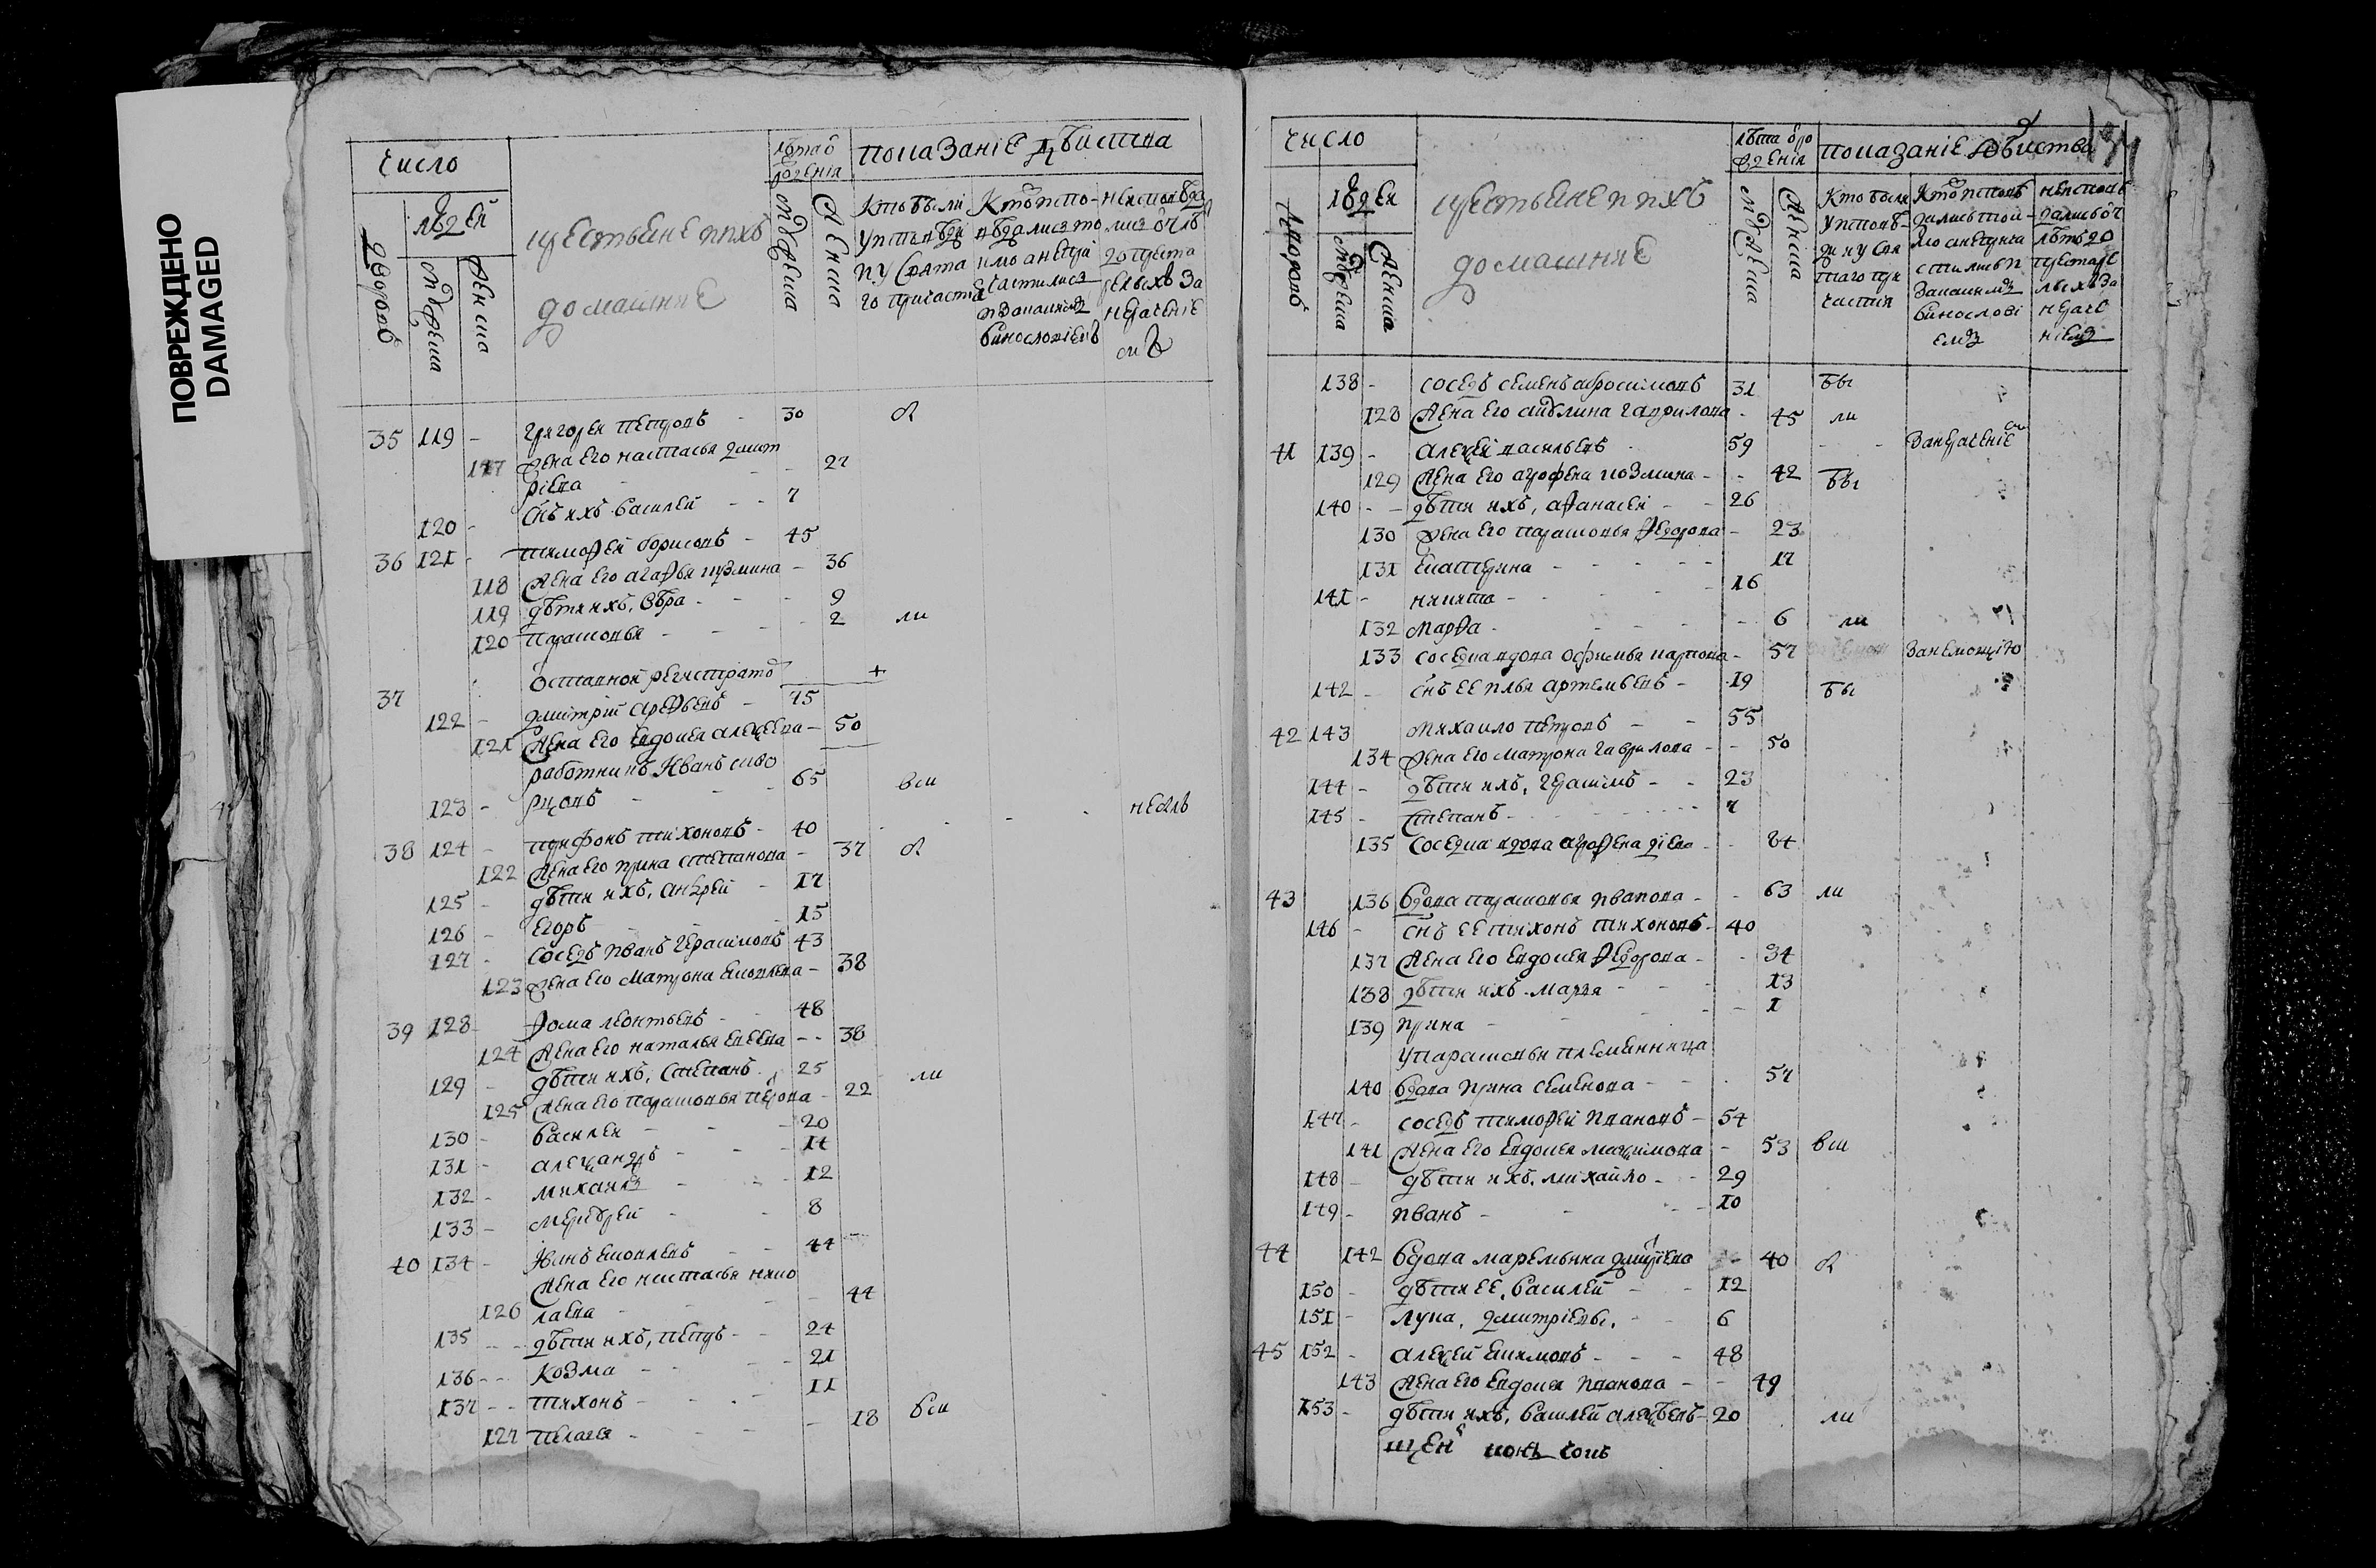 ПОВРЕЖДЕНО
DAMAGED
число
людей
дворовъ
мужеска
женска
крестьяне и ихъ
домашние
лѣта ѿ рожденія
мужеска
женска
показаніе дѣиства
Кто были
у исповѣди
и у Свята
го причастія
Кто испо-
вѣдались то
кмо а не при
частились
и за какимъ
винословіемъ
не исповѣда
лись
за
нераченіе
мъ
35 119 - Григореи Петровъ - 30 б
117 жена его настасья дмит
ріева - 27
120 - Снъ ихъ василеи - - 7
36 121 - тимоѳеи борисовъ - 45
118 жена его агаѳья кузмина - 36
119 дѣти ихъ, Вѣра - - - 9
120 парасковья - - - 2 ли
37 ѿставнои регистраторъ
122 - дмитріи ареѳьевъ - 75
121 жена его евдокея алексеева - 50
работникъ Иванъ сиво
123 - рцовъ - - - 65 вш
38 124 - трифонъ тихоновъ - 40
122 жена его ирина степанова - 37 б
125 - дѣти ихъ, андреи - 17
126 - Егоръ - - - 15
127 - сосѣдъ иванъ Герасимовъ 43
123 жена его матрона Емовлева - 38
39 128 - ѳома леонтьевъ - 48
124 жена его наталья евсѣева - - 38
129 - дѣти ихъ, степанъ - 25 ли
125 жена его парасковья петрова - 22
130 - василеи - - - 20
131 - алеѯандръ - - - 14
132 - михаила - - - 12
133 - меркурей - - 8
40 134 - Иванъ емовлевъ - - 44
жена его настасья нико
126 лаева - - - 44
135 - - дѣти ихъ, петръ - - 24
136 - - козма - - - 21
137 - - тихонъ - - - 11
127 пелагея - - - 18 вш
число
людей
дворовъ
мужеска
женска
крестьяне и ихъ
домашние
лѣта ѿ рожденія
мужеска
женска
показаніе дѣиства
Кто были
у исповѣ-
ди и у Свя
таго при
частия
Кто исповѣ
дались токмо
а не прича
стились и
за какимъ
винослові
емъ
не исповѣ
дались
за
нераче
ніемъ
138 - сосѣдъ семенъ абросимовъ 31 бы
128 жена его акулина гаврилова - 45 ли
41 139 - алеѯеи васильевъ 59 - - за нераченіемъ
129 жена его аграфена козмина - - 42 бы
140 - - дѣти ихъ, аѳанасеи - - 26
130 жена его парасковья ѳедорова - 23
131 Екатерина - - - - - 17
141 - никита - - - - - 16
132 марѳа - - - - - 6 ли
133 соседка вдова офимья карпова - 57 за немощію
142 - снъ ее илья артемьевъ - 19 бы
42 143 михаило петровъ - - 55
134 жена его матрона гаврилова - - 50
144 - дѣти ихъ, герасимъ - - 23
145 - степанъ - - - - 7
135 Соседка вдова аграѳена - - 84
43 136 вдова парасковья иванова - - 63 ли
146 - снъ ее тихонъ тихоновъ - 40
137 жена его евдокея ѳедорова - - 34
138 дѣти ихъ. марья - - - 13
139 ирина - - - - 1
у парасковьи племянница
140 вдова ирина семенова - - - 57
147 - сосѣдъ тимоѳеи ивановъ - 54
141 жена его евдокея маѯимова - 53 вш
148 - дѣти ихъ. михаило - - 29
149 - иванъ - - - - 10
44 142 вдова маремьяна дмитріева - 40 б
150 - дѣти ее, василеи - - 12
151 - лука, дмитріевы. - - 6
45 152 - алеѯеи екимовъ - - - 48
143 жена его евдокея иванова - - 49
153 - дѣти ихъ, василеи алеѯѣевъ - 20 ли